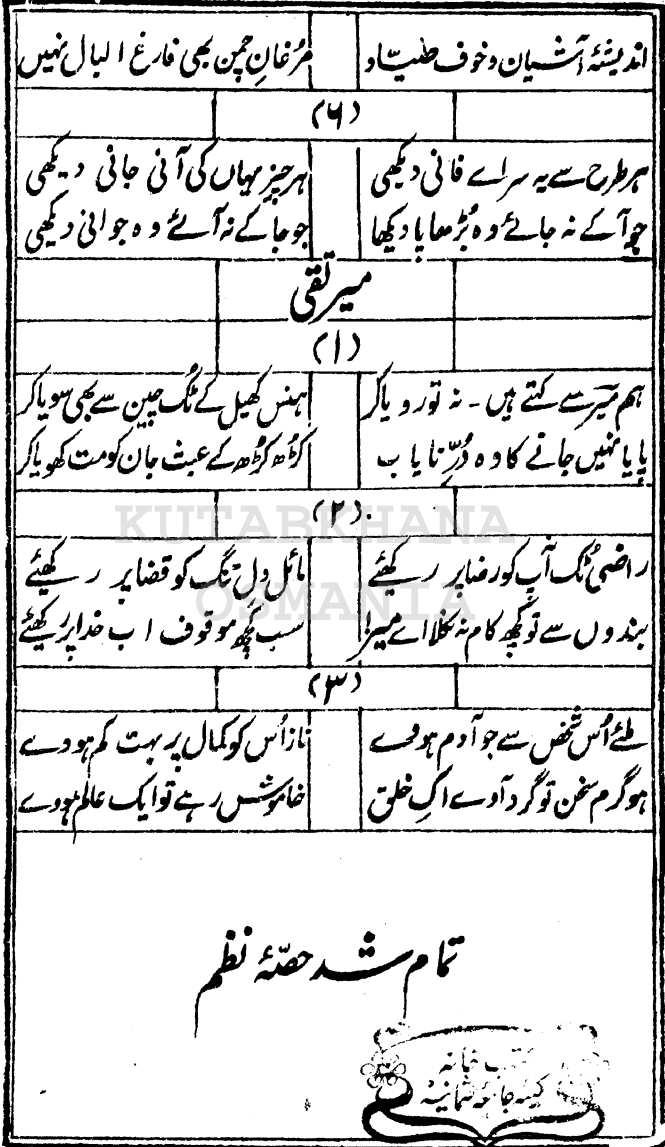 اندیشۂ آشیان و خوف صیّاد مرُغانِ چمن بھی فارغ البال نہیں
(۶)
ہر طرح سے یہ سراے فانی دیکھی ہر چیز یہاں کی آنی جانی دیکھی
جو آکے نہ جائے وہ بُڑھاپا دیکھا جو جاکے نہ آئے وہ جوانی دیکھی
میر تقی
(۱)
ہم میرؔ سے کہتے ہیں ۔ نہ تو رویا کر ہنس کھیل کے ٹُک چین سے بھی سویا کر
پایا نہیں جانے کا وہ دُرِّ نایاب کڑھ کڑھ کے عبث جان کو مت کھویا کر
(۲)
KUTABKHANA
OSMANIA
راضی ٹُک آپ کو رضا پر رکھئے مائل دلِ تنگ کو قضا پر رکھئے
بندوں سے تو کُچھ کام نہ نکلا اے میرؔ! سب کُچھ موقوف اب خدا پر رکھئے
(۳)
ملئے اُس شخص سے جو آدم ہووے ناز اُس کو کمال پر بہت کم ہووے
ہو گرم سخن تو گرد آوے اک خلق خاموش رہے تو ایک عالم ہووے
تمام شد حصّۂ نظم
کتب خانہ
جامعہ عثمانیہ